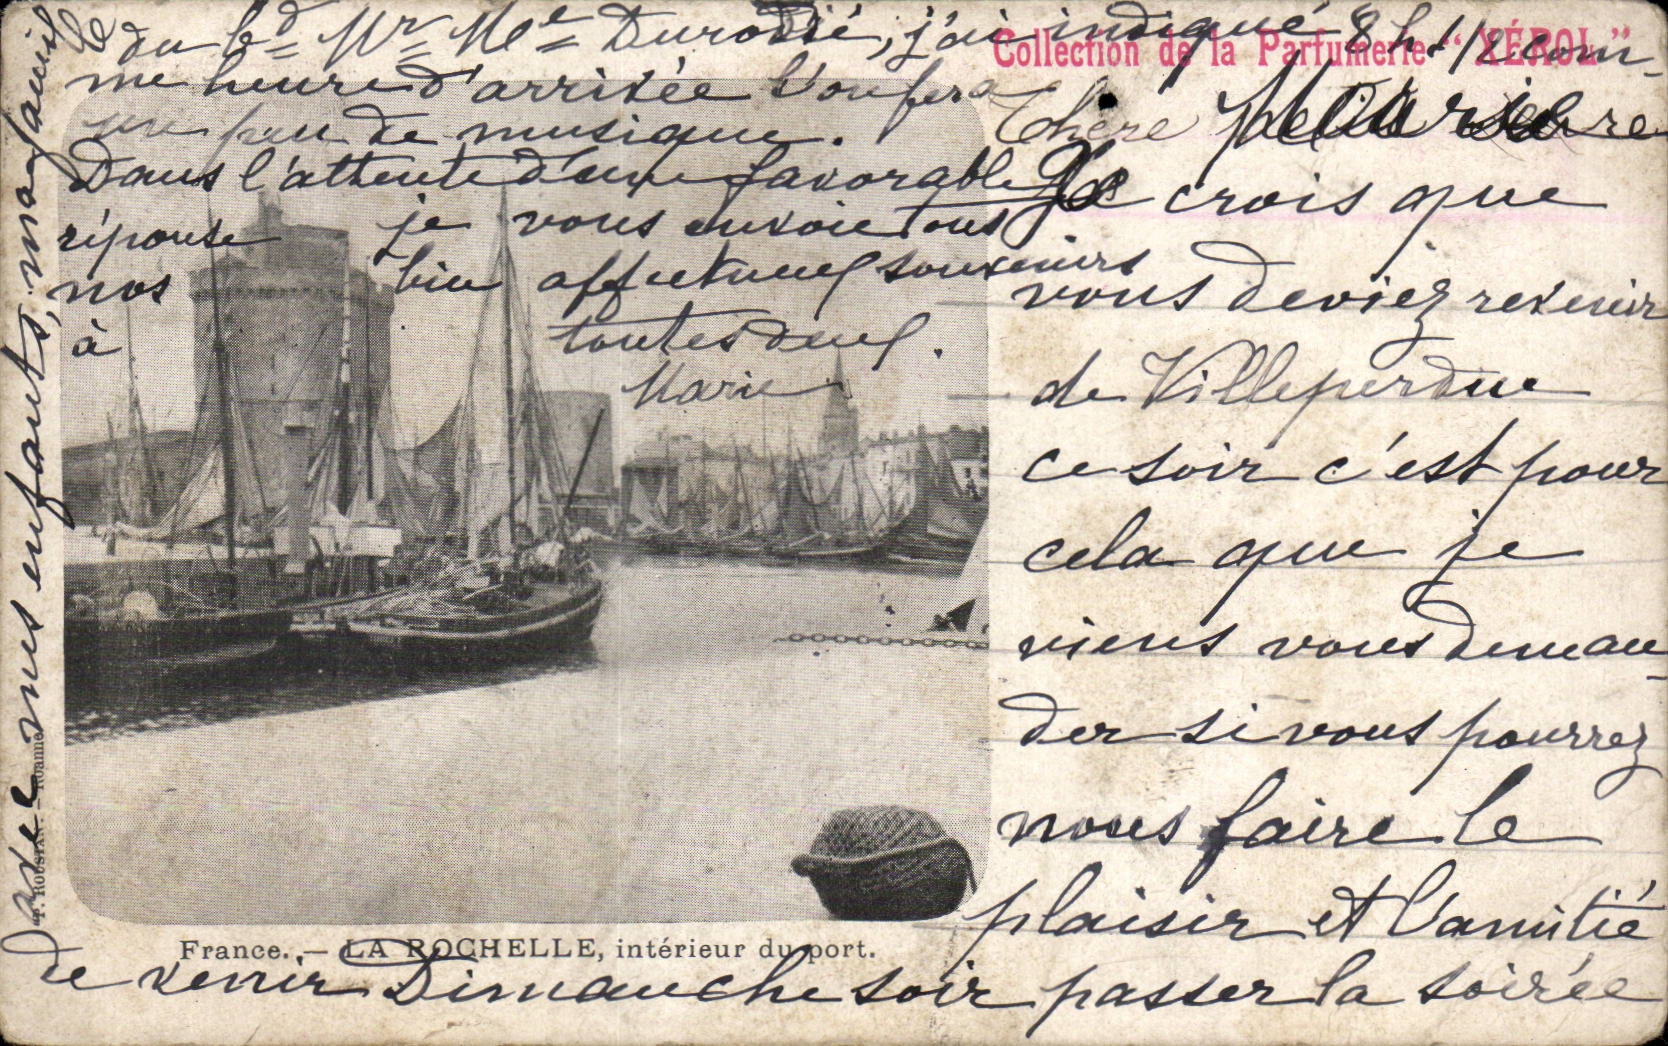 Collection de la Parfumerie "XÉROL"
Chère
Je crois que
vous deviez revenir
de Villeperdue
ce soir c'est pour
cela que je
viens vous deman-
der si vous pourrez
nous faire le
plaisir et l'amitié
de venir Dimanche soir passer la soirée
avec mes enfants, ma famil
le du bd = Mr = Me = Durodié, j'ai indiqué 8 h 1/2 com-
me heure d'arrivée l'on fera
un peu de musique.
Dans l'attente d'une favorable
réponse je vous envoie tous
nos bien affectueux souvenirs
à toutes deux.
Marie
France. — LA ROCHELLE, intérieur du port.
ROUSTAN. — Roanne